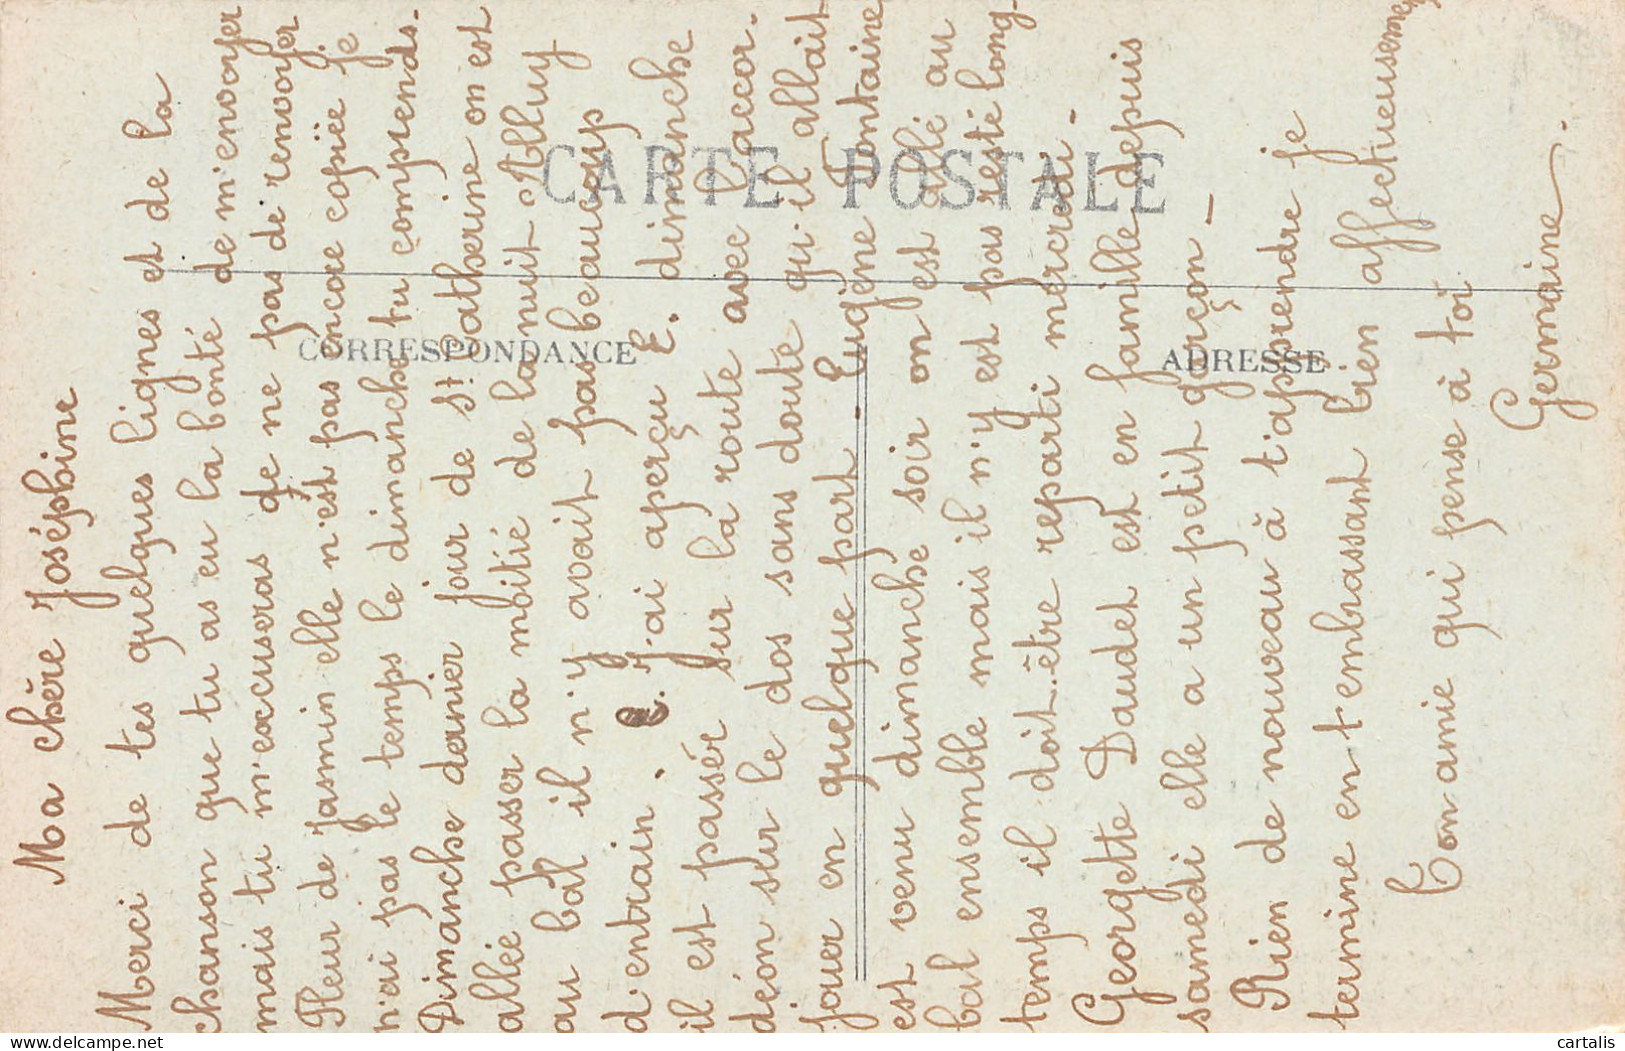 Ma chère Joséphine
Merci de tes quelques lignes et de la
chanson que tu as eu la bonté de m'envoyer
mais tu m'excuseras de ne pas de renvoyer
Fleur de Jasmin elle n'est pas encore copiée je
n'ai pas le temps le dimanche tu comprends.
Dimanche dernier jour de St Catherine on est
allée passer la moitié de la nuit Alluy
au bal il n'y avait pas beaucoup
d'entrain. J'ai aperçu E. dimanche
il est passé sur la route avec l'accor-
déon sur le dos sans doute qu'il allait
jouer en quelque part. Eugène Fontaine
est venu dimanche soir on est allé au
bal ensemble mais il n'y est pas resté long-
temps il doit-être reparti mercredi-
Georgette Daudet est en famille depuis
samedi elle a un petit garçon -
Rien de nouveau à t'apprendre je
termine en t'embrassant bien affectueusement
Ton amie qui pense à toi
Germaine.
CARTE POSTALE
CORRESPONDANCE
ADRESSE
delcampe.net
cartalis